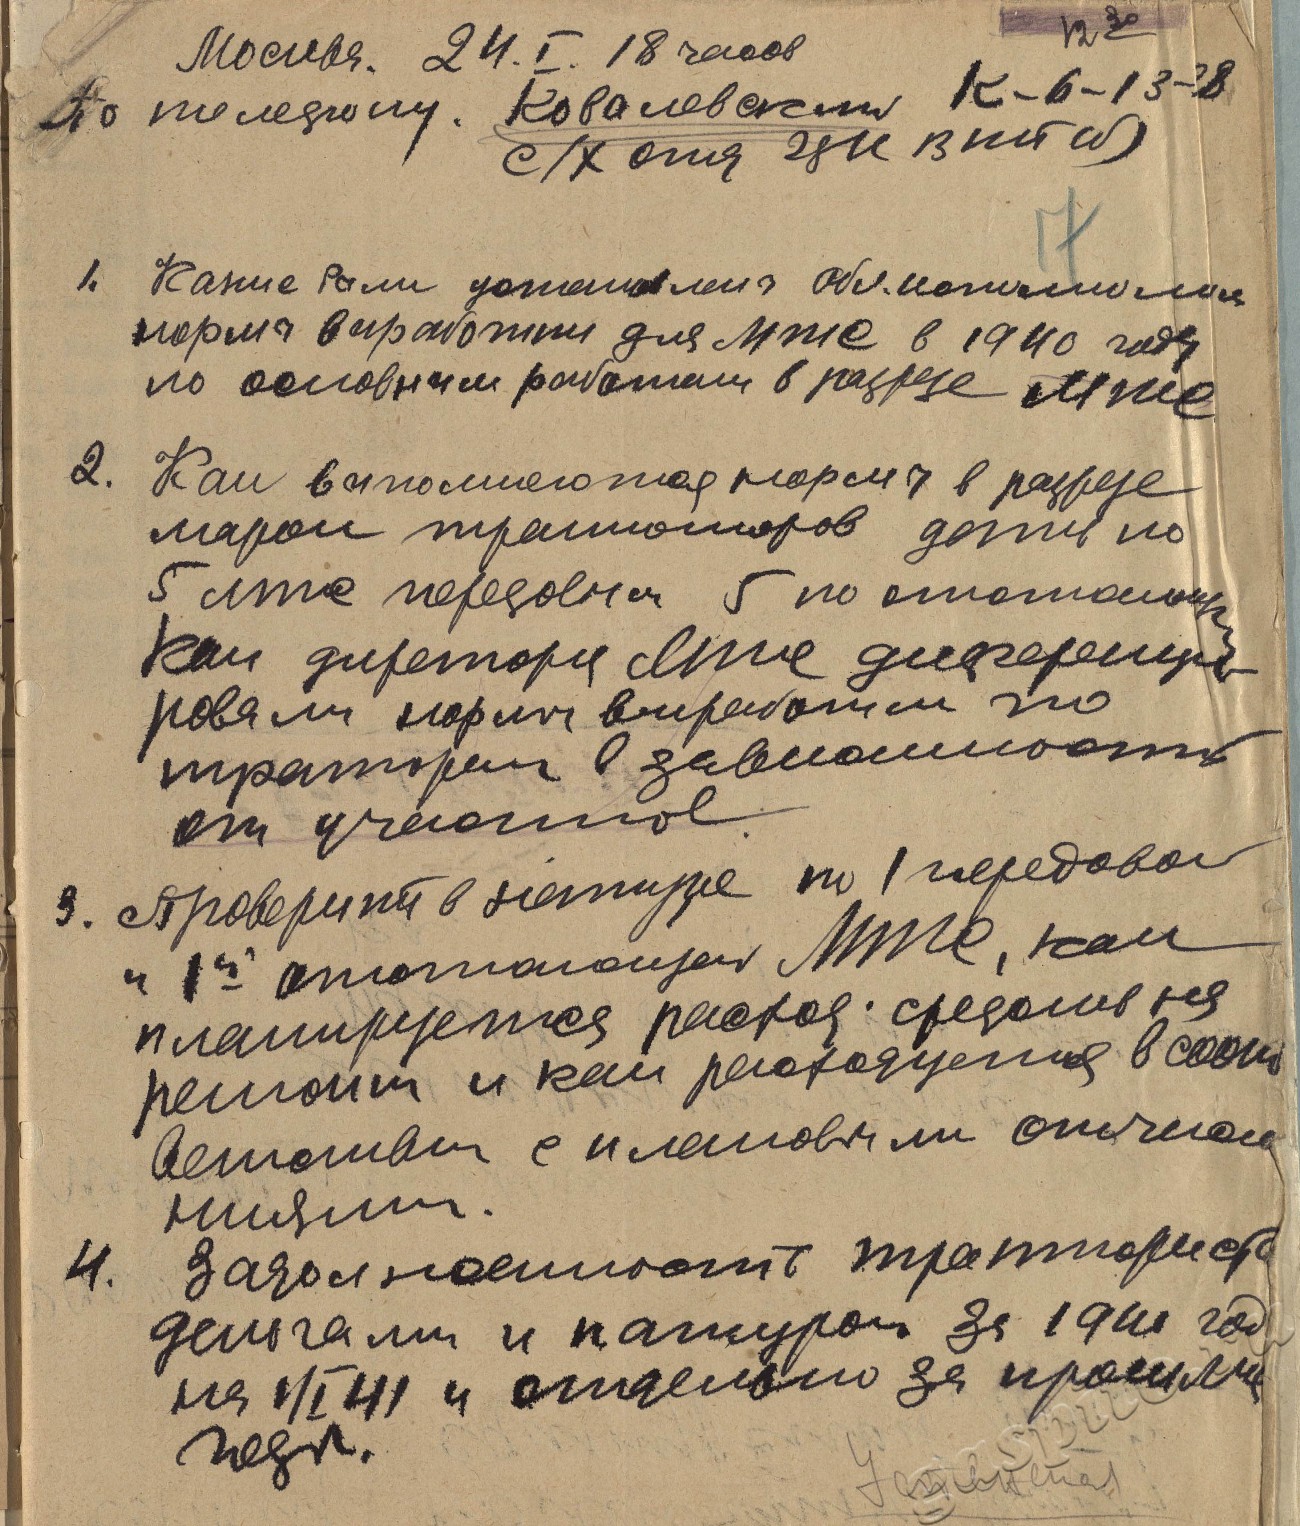 12 30
Москва. 24.I. 18 часов
По телефону. Ковалевский К-6-13-28
с/х отд ЦК ВКП(б)
17
1. Какие были установлены Обл.исполкомом
нормы выработки для МТС в 1940 году
по основным работам в разрезе МТС
2. Как выполняются нормы в разрезе
марок тракторов дать по
5 МТС передовым 5 по отстающим
Как директора МТС диференци-
ровали нормы выработки по
тракторам в зависимость
от участков.
3. Проверить в натуре по 1 передовой
и 1й отстающей МТС, как
планируется расход средств на
ремонт и как расходуется в соот
ветствии с плановыми отчисле
ниями.
4. Задолженность трактористам
деньгами и натурой за 1940 год
на 1/I 41 и отдельно за прошлые
годы.